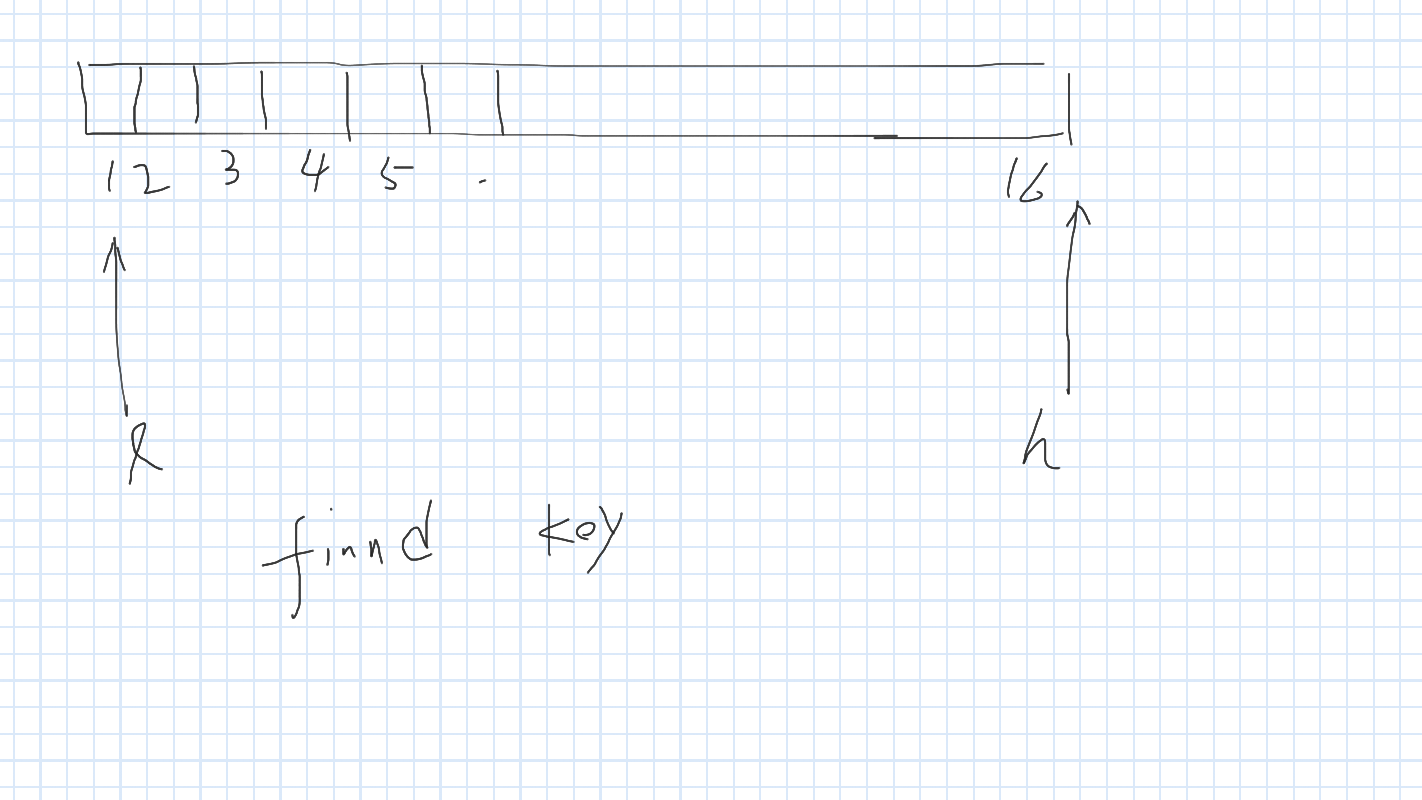 1 2 3 4 5 . 16
l h
finnd key